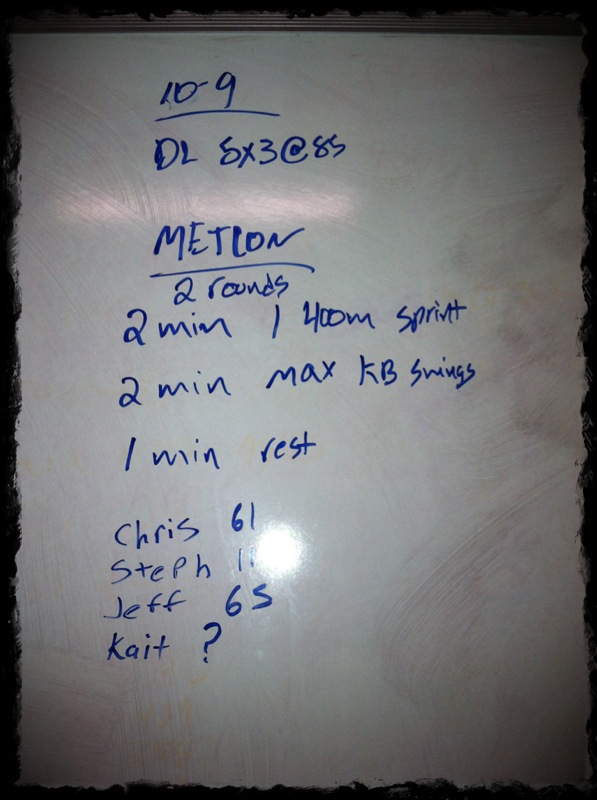 10-9
DL 5x3@85
METCON
2 rounds
2 min 1 400m sprint
2 min max KB swings
1 min rest
Chris 61
Steph
Jeff 65
Kait ?